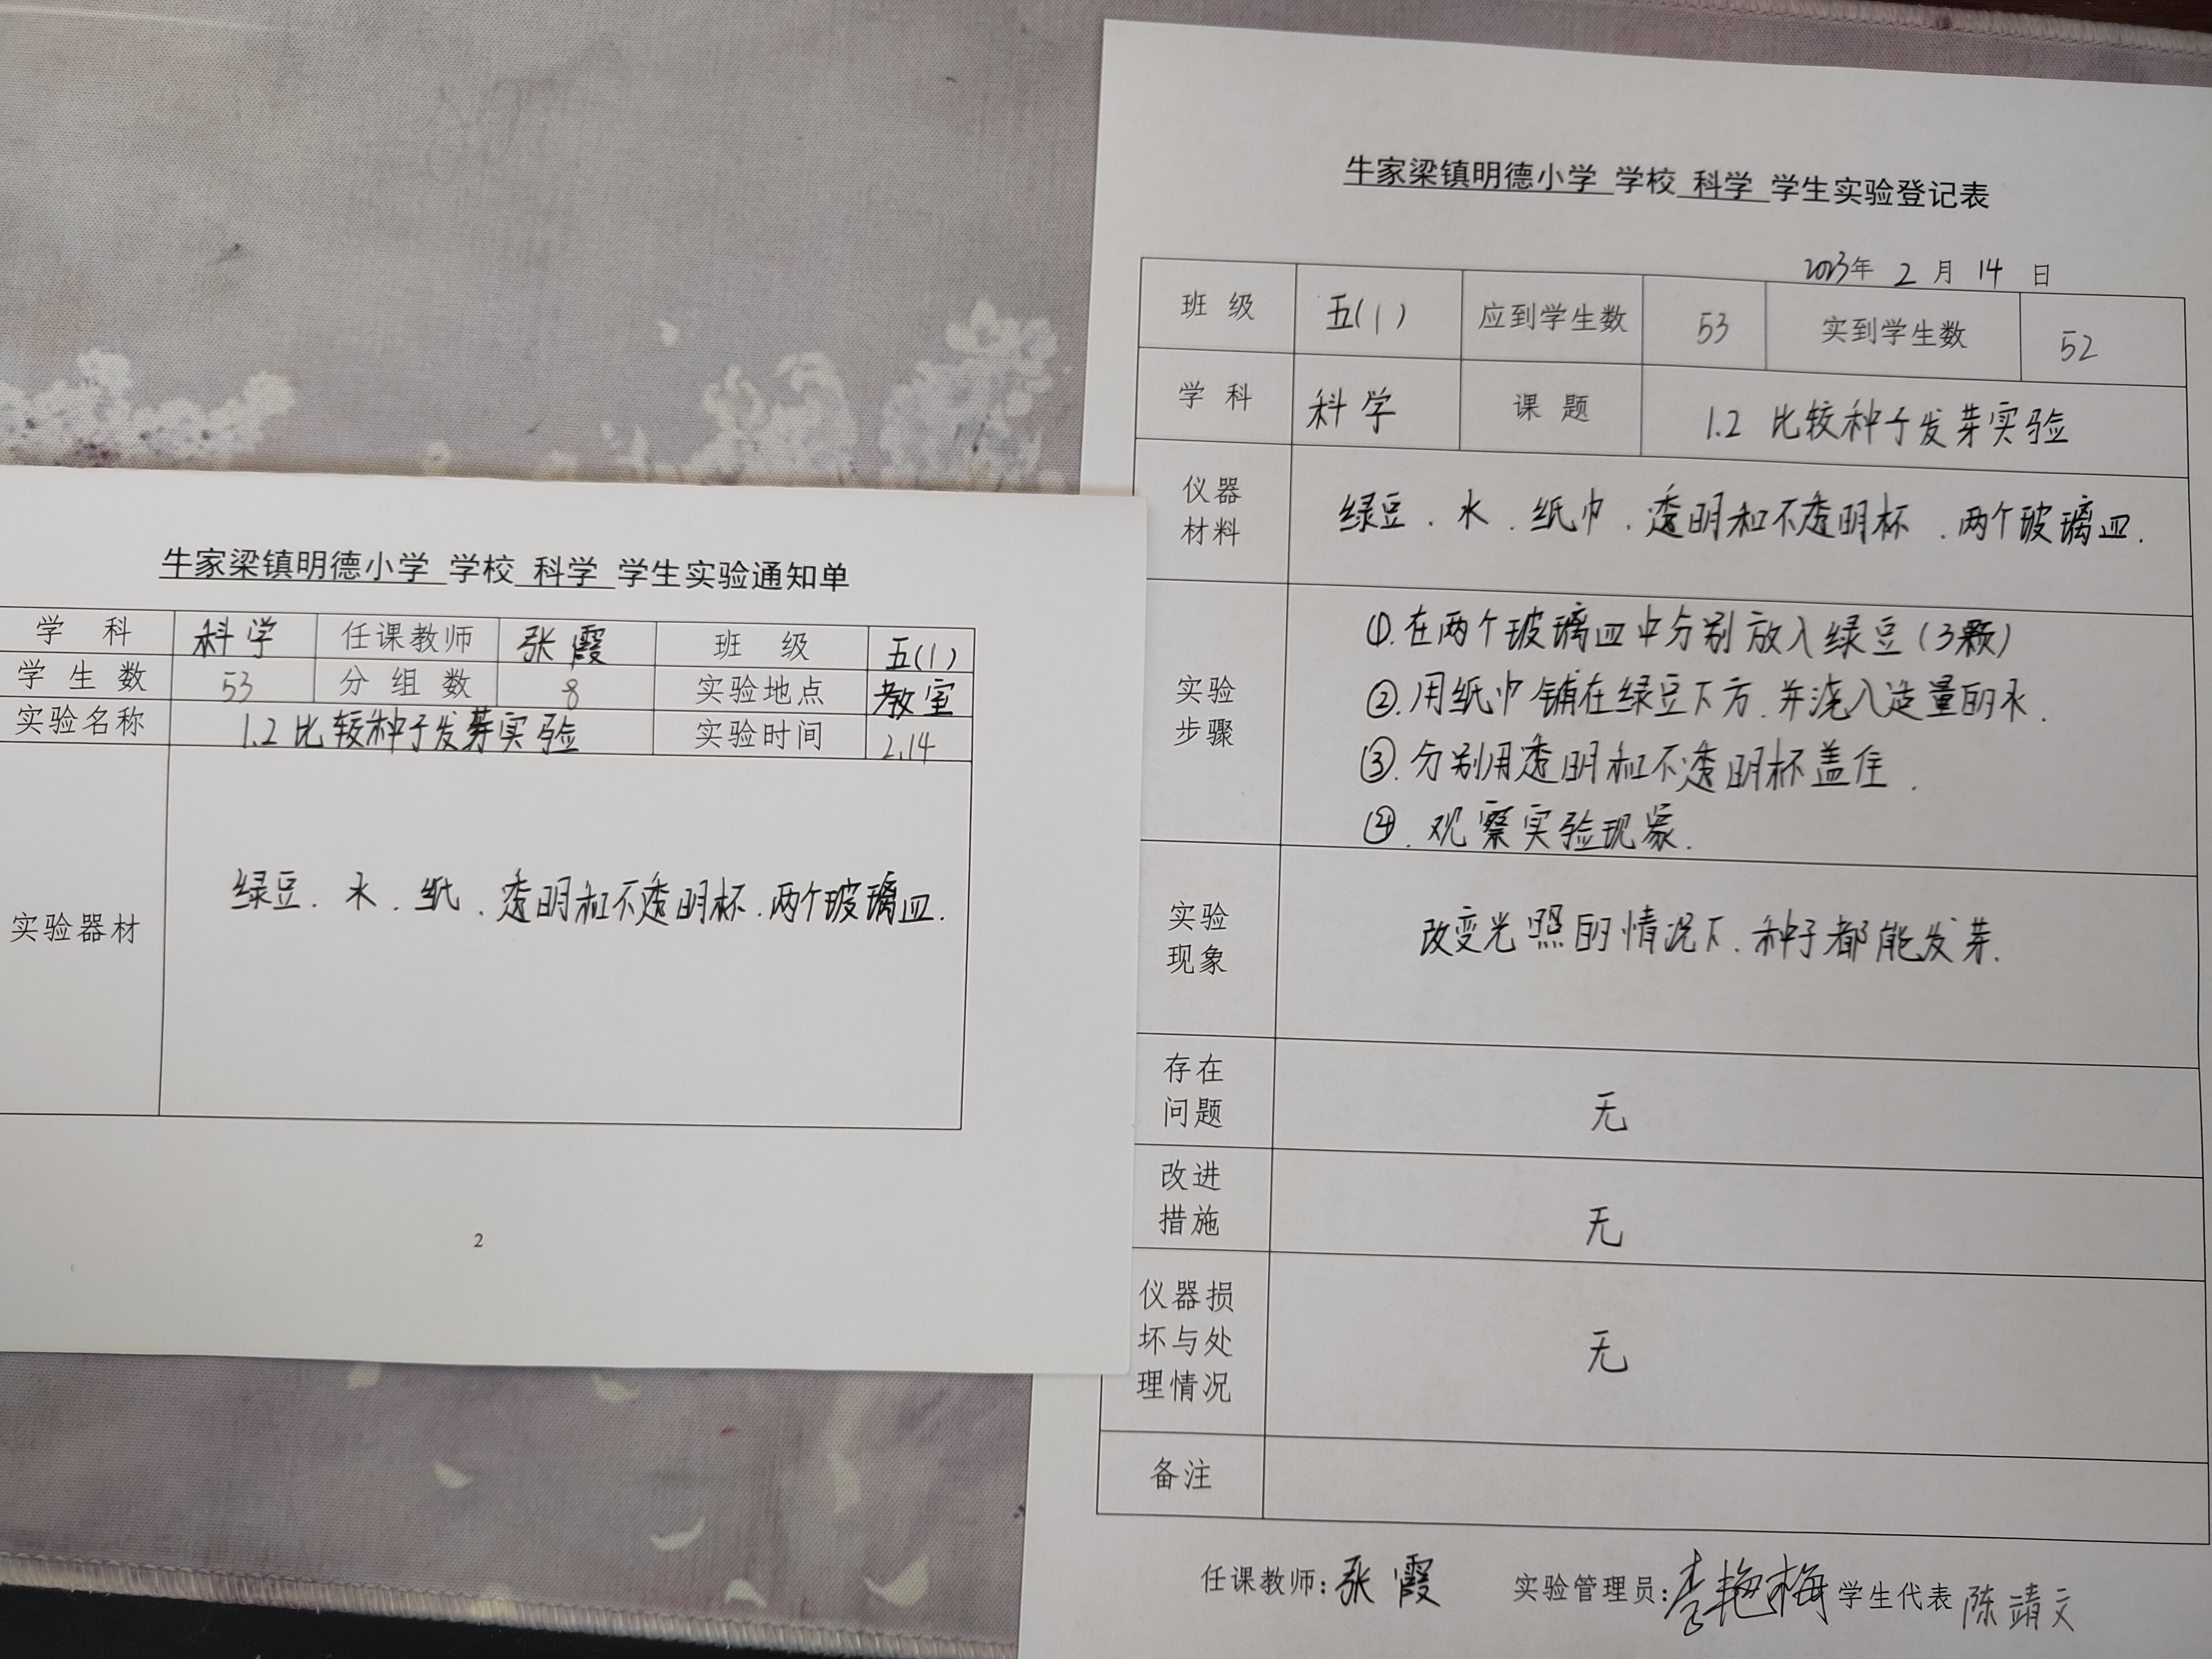 牛家梁镇明德小学 学校 科学 学生实验通知单
学 科 科学 任课教师 张霞 班 级 五(1)
学 生 数 53 分 组 数 8 实验地点 教室
实验名称 1.2 比较种子发芽实验 实验时间 2.14
实验器材 绿豆.水.纸.透明和不透明杯.两个玻璃皿.
2
牛家梁镇明德小学 学校 科学 学生实验登记表
2023年 2 月 14 日
班 级 五(1) 应到学生数 53 实到学生数 52
学 科 科学 课 题 1.2 比较种子发芽实验
仪器
材料
绿豆.水.纸巾.透明和不透明杯.两个玻璃皿.
实验
步骤
①.在两个玻璃皿中分别放入绿豆(3颗)
②.用纸巾铺在绿豆下方.并浇入适量的水.
③.分别用透明和不透明杯盖住.
④.观察实验现象.
实验
现象
改变光照的情况下.种子都能发芽.
存在
问题
无
改进
措施
无
仪器损
坏与处
理情况
无
备注
任课教师:张霞 实验管理员:李艳梅 学生代表 陈靖文